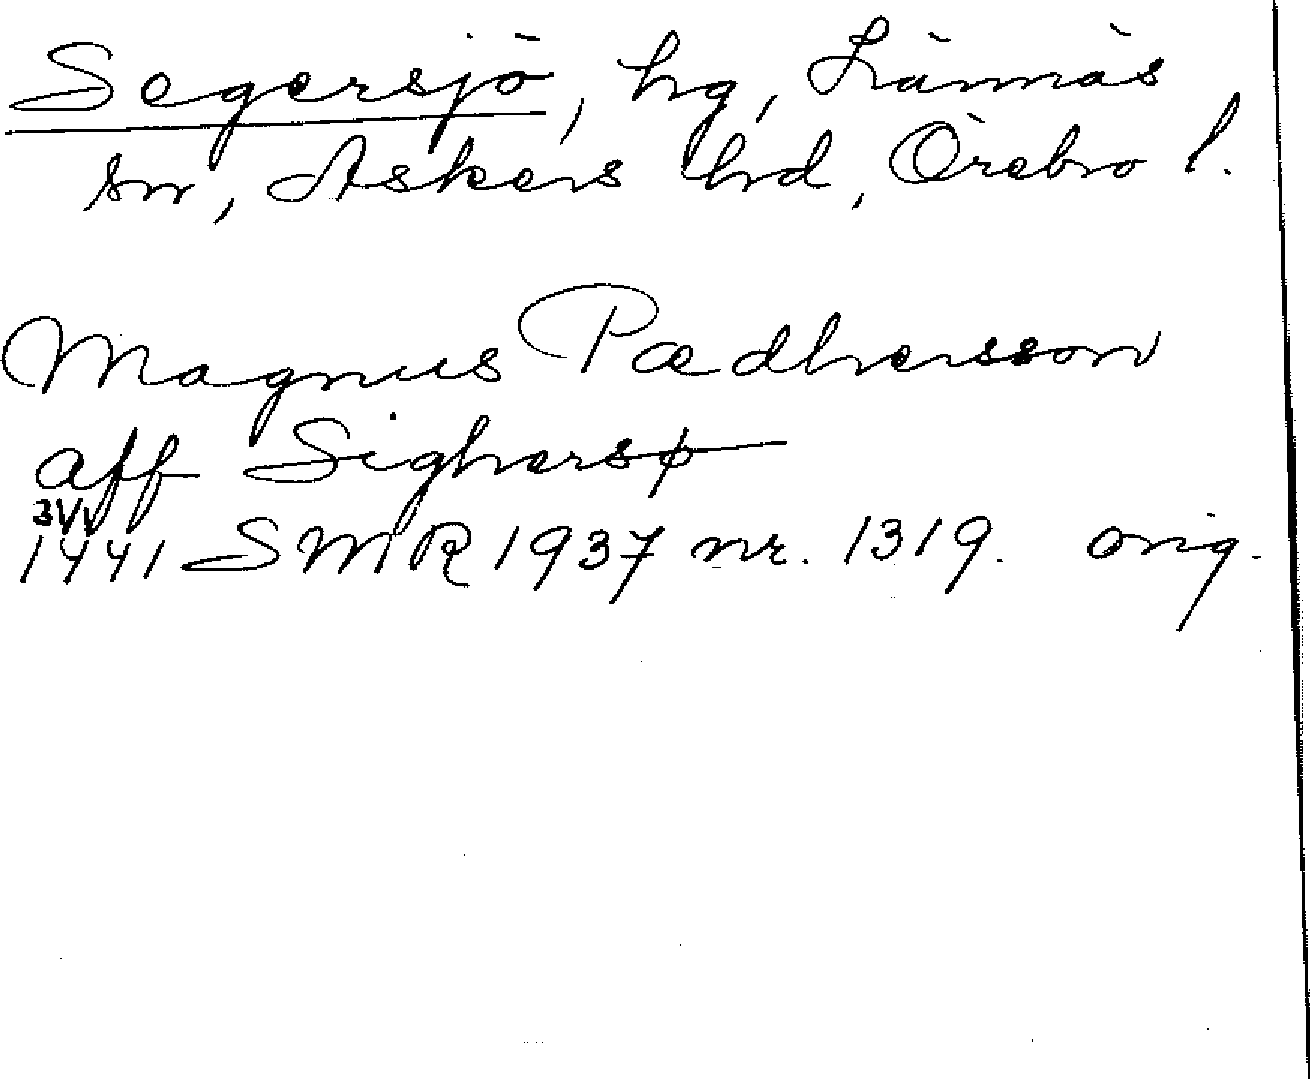 Segersjö, hg, Lännäs
sn, Askers hd, Örebro l.
Magnus Pædhersson
aff Sighersø
3/V
1441 SMR 1937 nr. 1319. orig.